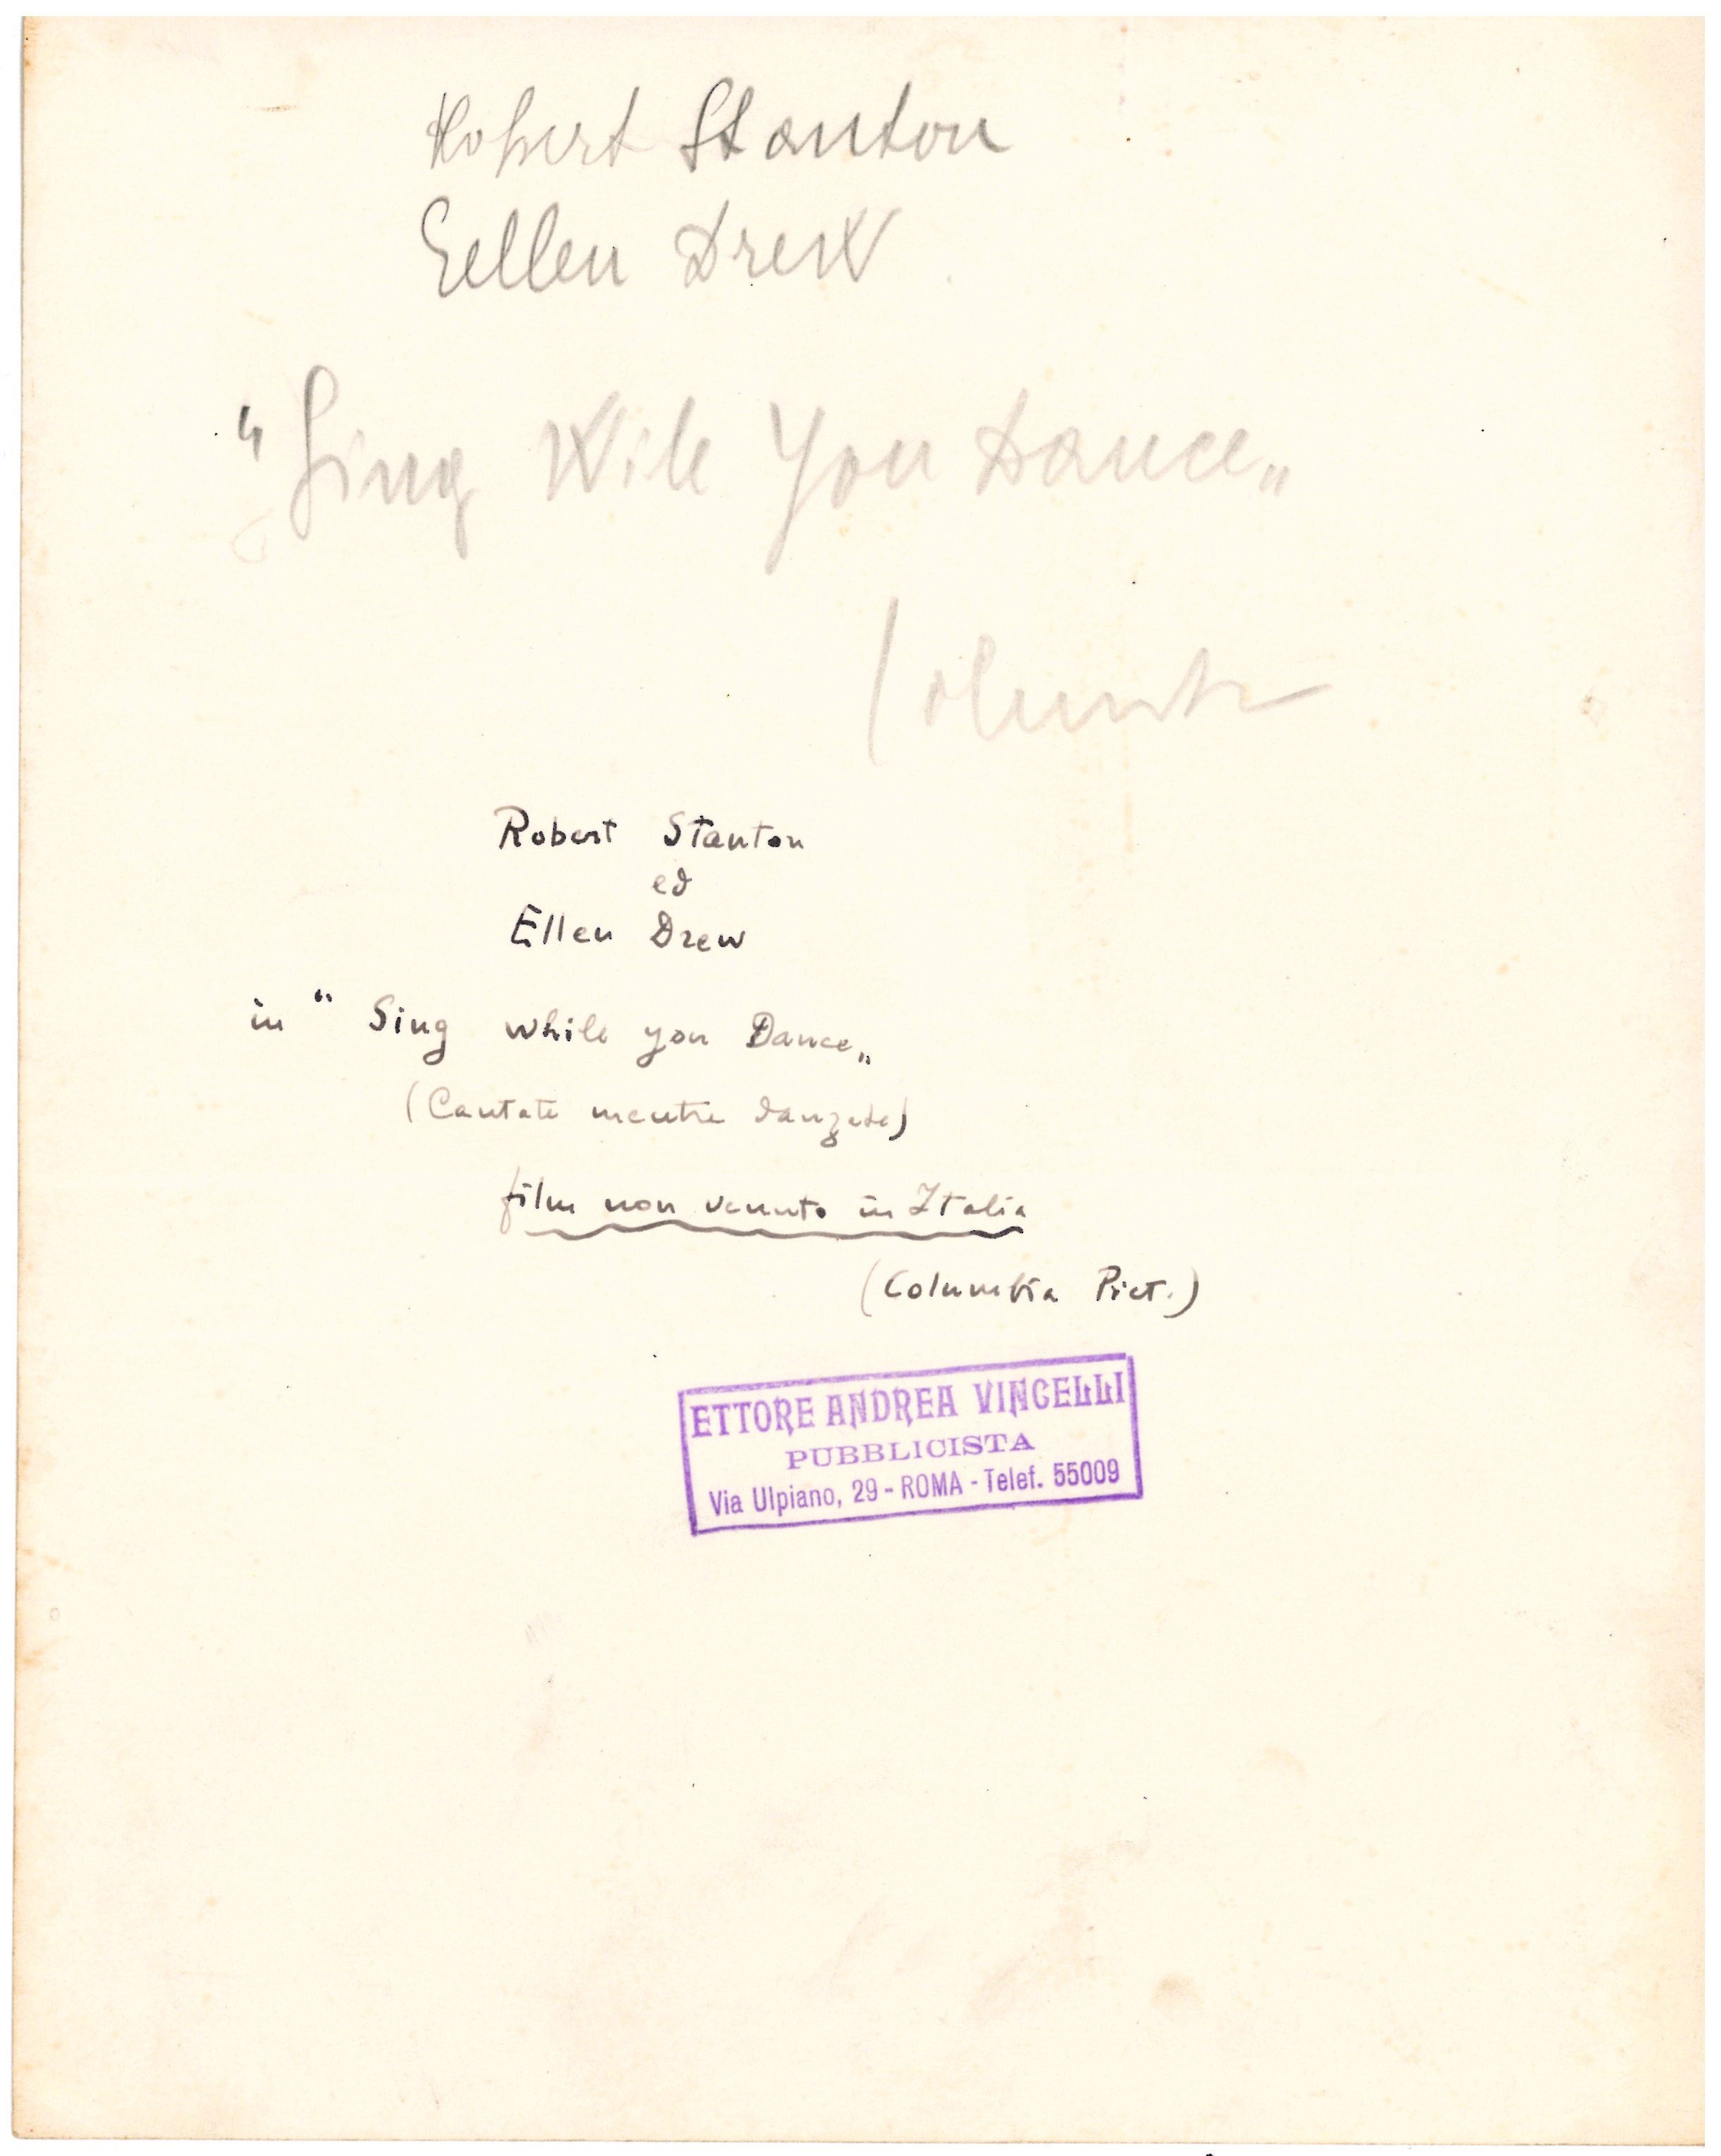 Robert Stanton
Eellen Drew
"Sing Wile You Dance„
Robert Stanton
ed
Ellen Drew
in " Sing while you Dance„
(Cantate mentre danzate)
film non venuto in Italia
(Columbia Pict.)
ETTORE ANDREA VINCELLI
PUBBLICISTA
Via Ulpiano, 29 - ROMA - Telef. 55009